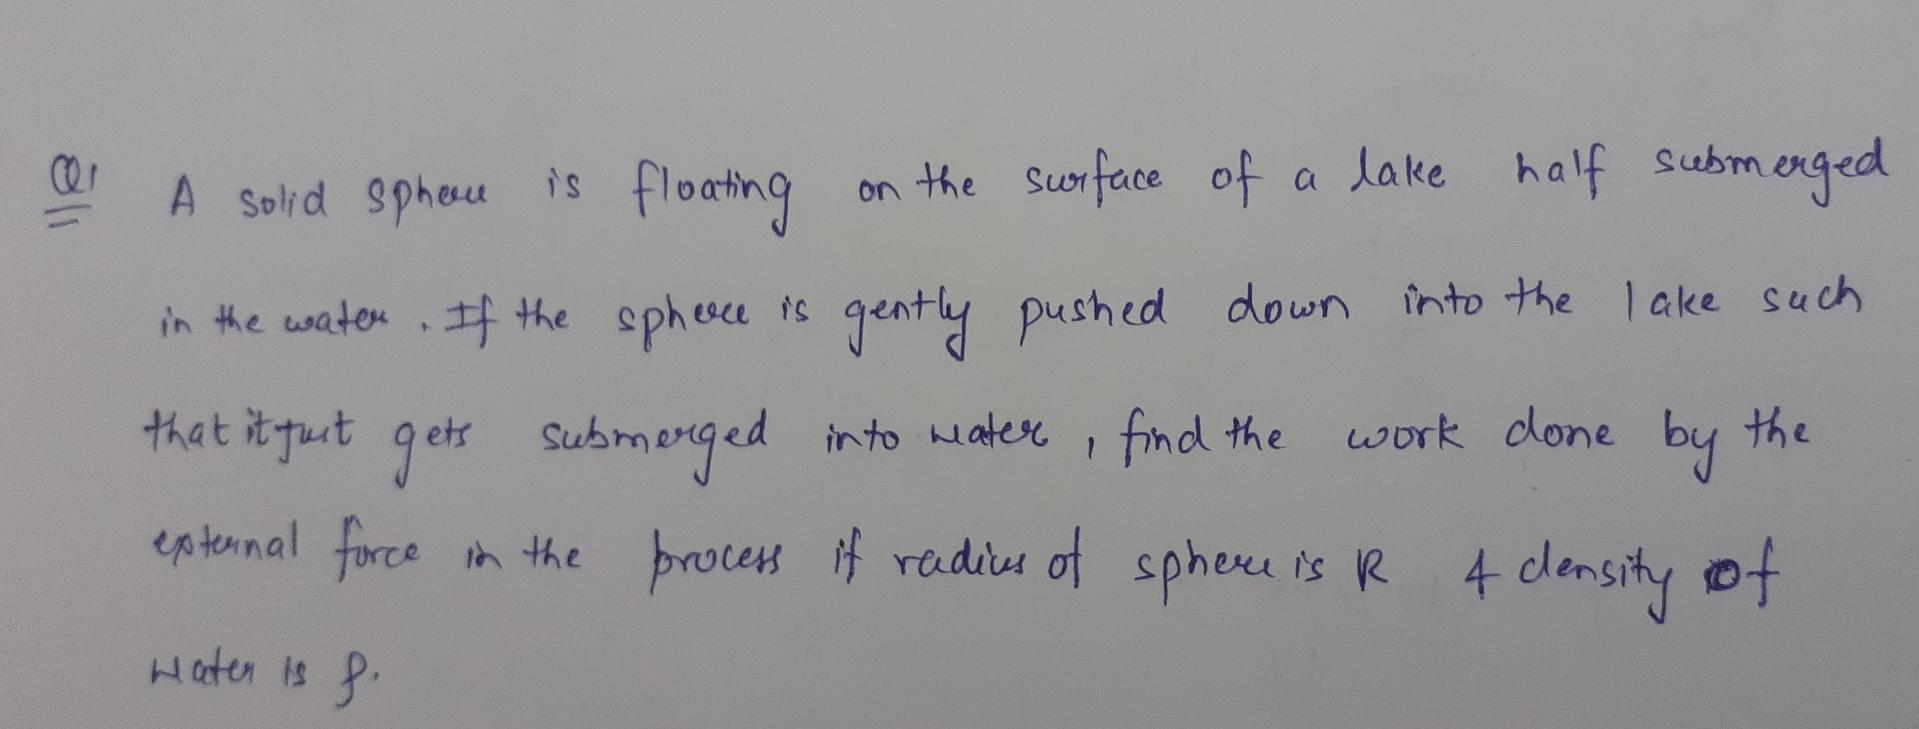 Q1 A solid sphere is floating on the surface of a lake half submerged
in the water. If the sphere is gently pushed down into the lake such
that it just gets submerged into water, find the work done by the
external force in the process if radius of sphere is R & density of
water is ρ.